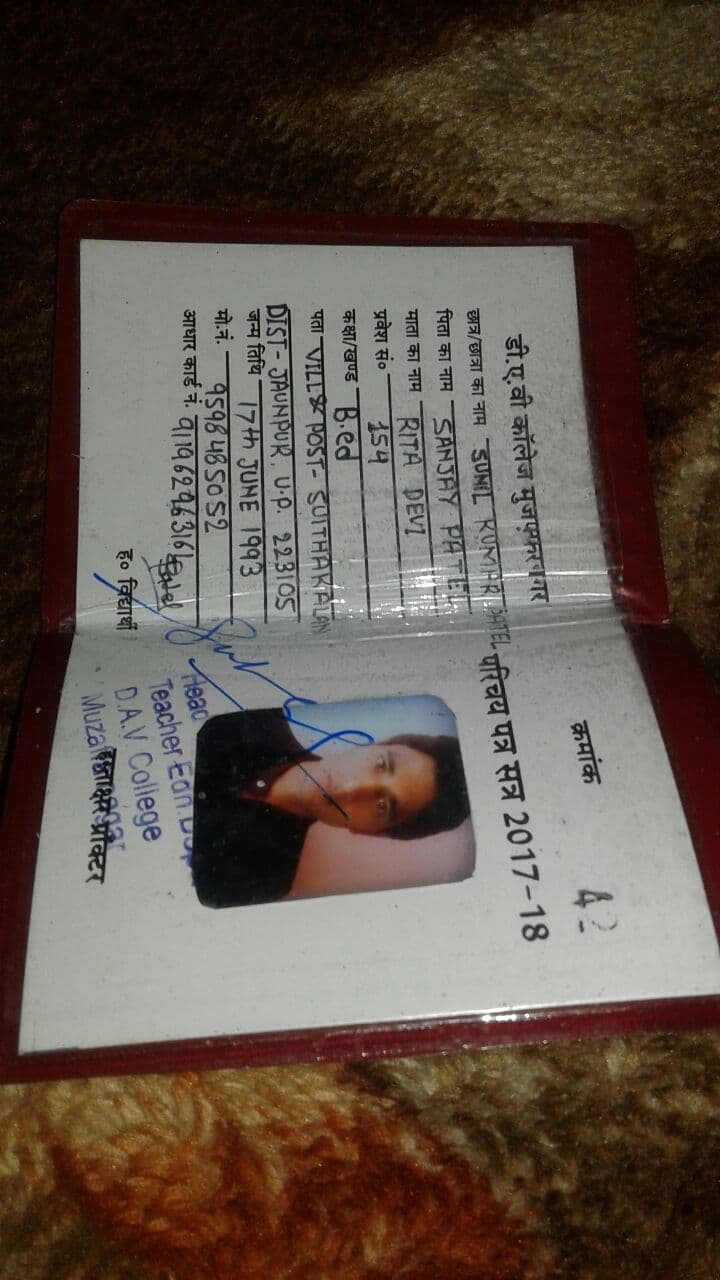 डी.ए.वी कॉलेज मुजफ्फरनगर
छात्र/छात्रा का नाम SUNIL KUMAR PATEL
पिता का नाम SANJAY PATEL
माता का नाम RITA DEVI
प्रवेश सं० 154
कक्षा/खण्ड B.ed
पता VILL & POST- SUITHAKALAN
DIST- JAUNPUR. U.P. 223105
जन्म तिथि 17th JUNE 1993
मो.नं. 9598485052
आधार कार्ड नं.
ह० विद्यार्थी
क्रमांक
परिचय पत्र सत्र 2017-18
Head
Teacher Edn.
D.A.V. College
हस्ताक्षर प्रॉक्टर